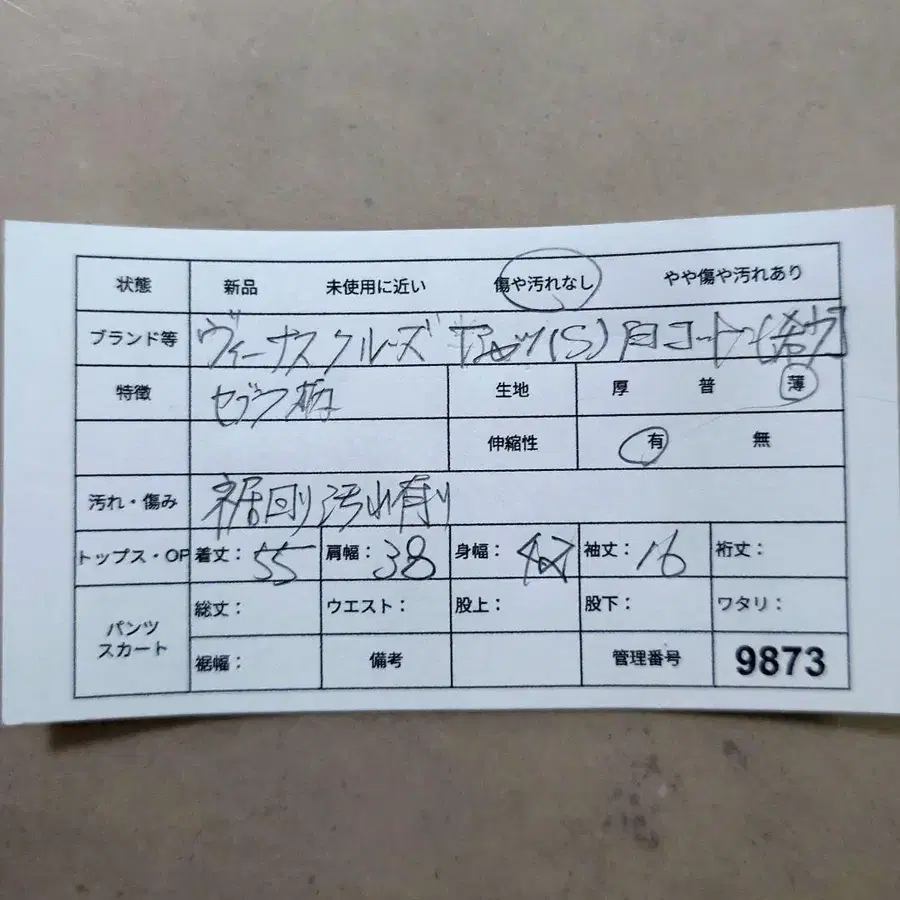 状態 新品 未使用に近い 傷や汚れなし やや傷や汚れあり
ブランド等 ヴィーナスクルーズ (S) 白
特徴 ゼブラ柄 生地 厚 普 薄
伸縮性 有 無
汚れ・傷み 裾 汚れ有り
トップス・OP 着丈： 55 肩幅： 38 身幅： 袖丈： 16 裄丈：
パンツ スカート 総丈： ウエスト： 股上： 股下： ワタリ：
裾幅： 備考 管理番号 9873